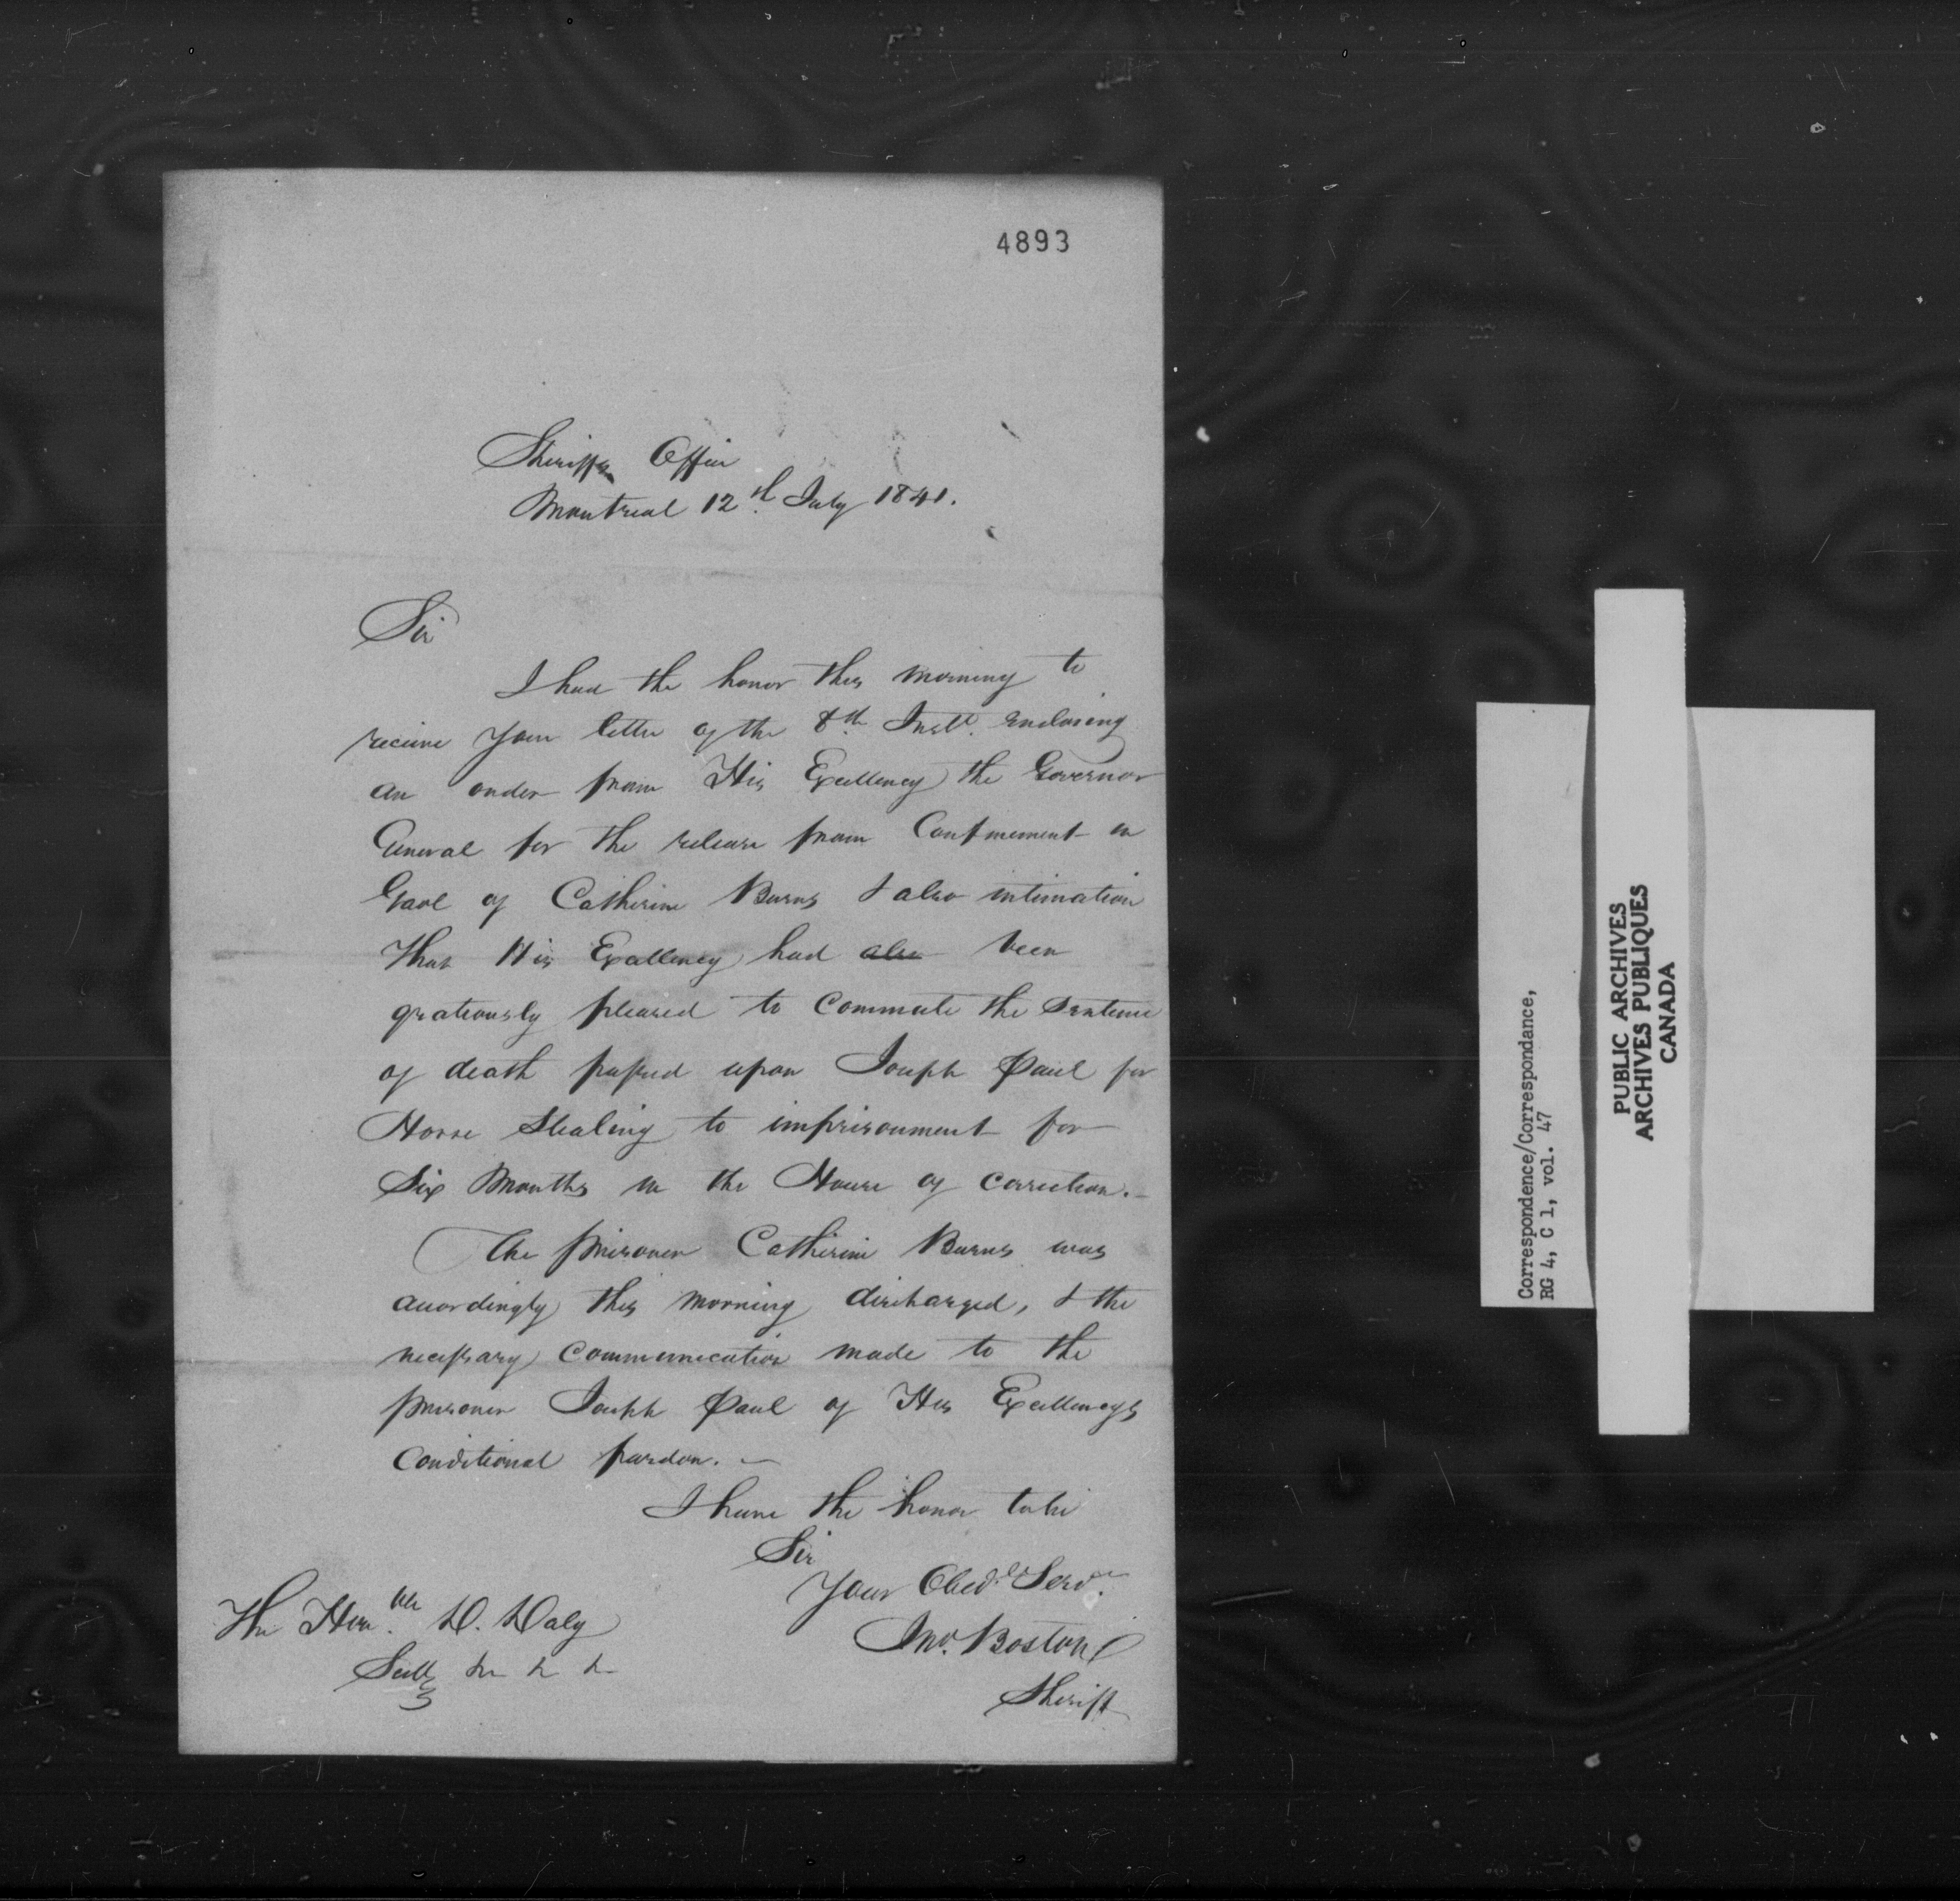 4893
Sheriffs Office
Montreal 12th July 1841.
Sir
I had the honor this morning to
receive your letter of the 8th Inst. enclosing
an order from His Excellency the Governor
General for the release from Confinement in
Gaol of Catherine Burns & also intimation
that His Excellency had also been
gratiously pleased to Commute the Sentence
of death passed upon Joseph Paul for
Horse Stealing to imprisonment for
Six Months in the House of Correction.
The prisoner Catherine Burns was
accordingly this morning discharged, & the
necessary Communication made to the
prisoner Joseph Paul of His Excellencys
Conditional pardon.
I have the honor to be
Sir
Your Obedt Servt.
Jno. Boston
Sheriff
The Honble D. Daly
Secty &c &c &c
Correspondence/Correspondance,
RG 4, C 1, vol. 47
PUBLIC ARCHIVES
ARCHIVES PUBLIQUES
CANADA